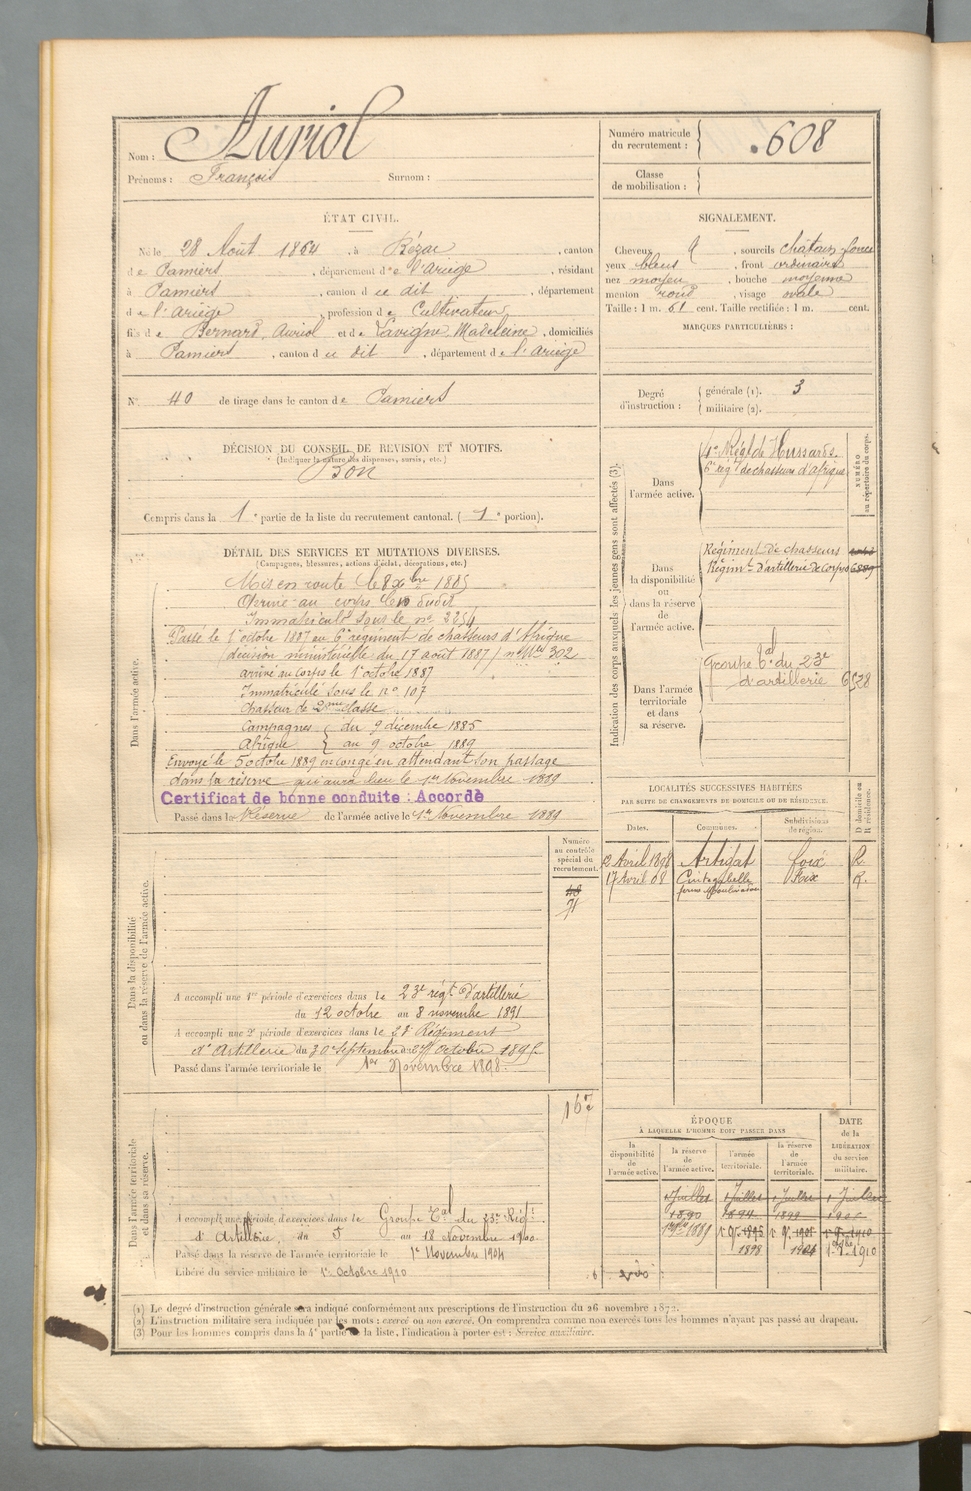 Nom : Auriol
Prénoms : François Surnom :
Numéro matricule du recrutement : 608
Classe de mobilisation :
ÉTAT CIVIL.
Né le 28 Août 1864, à Bézac, canton
de Pamiers, département de l'Ariège, résidant
à Pamiers, canton du dit, département
de l'Ariège, profession de Cultivateur
fils de Bernard Auriol et de Lavigne Madeleine, domiciliés
à Pamiers, canton du dit, département de l'Ariège
N° 40 de tirage dans le canton de Pamiers
SIGNALEMENT.
Cheveux, sourcils châtain foncé
yeux bleus, front ordinaire
nez moyen, bouche moyenne
menton rond, visage ovale
Taille : 1 m. 61 cent. Taille rectifiée : 1 m. cent.
MARQUES PARTICULIÈRES :
Degré d'instruction : générale (1). 3
militaire (2).
DÉCISION DU CONSEIL DE REVISION ET MOTIFS.
(Indiquer la nature des dispenses, sursis, etc.)
Bon
Compris dans la 1e partie de la liste du recrutement cantonal. (1e portion).
DÉTAIL DES SERVICES ET MUTATIONS DIVERSES.
(Campagnes, blessures, actions d'éclat, décorations, etc.)
Dans l'armée active.
Mis en route le 8 Xbre 1885
Arrivé au corps le 10 dudit
Immatriculé sous le n° 3254
Passé le 1 octobre 1887 au 6e régiment de chasseurs d'Afrique
(décision ministérielle du 17 août 1887) n° 302
arrivé au corps le 1 octobre 1887
Immatriculé sous le n° 107
Chasseur de 2me classe
Campagnes du 9 décembre 1885
Afrique au 9 octobre 1889
Envoyé le 5 octobre 1889 en congé en attendant son passage
dans la réserve qui aura lieu le 1er novembre 1889
Certificat de bonne conduite : Accordé
Passé dans la Réserve de l'armée active le 1er Novembre 1889
Indication des corps auxquels les jeunes gens sont affectés (3).
NUMÉRO au répertoire du corps.
Dans l'armée active.
4e Régt de Hussards.
6e régt de chasseurs d'afrique
Dans la disponibilité ou dans la réserve de l'armée active.
Régiment de chasseurs
Régimt d'artillerie de Corps 6889
Dans l'armée territoriale et dans sa réserve.
Groupe tal du 23e
d'artillerie 6528
LOCALITÉS SUCCESSIVES HABITÉES
PAR SUITE DE CHANGEMENTS DE DOMICILE OU DE RÉSIDENCE.
Dates. Communes. Subdivisions de région. D domicile ou R résidence.
2 Avril 1898 Artigat Foix R
17 Avril 08 Cintegabelle Foix R.
Dans la disponibilité ou dans la réserve de l'armée active.
Numéro au contrôle spécial du recrutement.
48
71
A accompli une 1re période d'exercices dans le 23e régt d'artillerie
du 12 octobre au 8 novembre 1891
A accompli une 2e période d'exercices dans le 23e Régiment
d'Artillerie du 30 Septembre au 27 Octobre 1895.
Passé dans l'armée territoriale le 1er Novembre 1898.
Dans l'armée territoriale et dans sa réserve.
167
A accompli une période d'exercices dans le Groupe tal du 23e Régt
d'Artillerie, du 5 au 18 Novembre 1900
Passé dans la réserve de l'armée territoriale le 1er Novembre 1904
Libéré du service militaire le 1er Octobre 1910
ÉPOQUE
À LAQUELLE L'HOMME DOIT PASSER DANS
la disponibilité de l'armée active. la réserve de l'armée active. l'armée territoriale. la réserve de l'armée territoriale.
DATE de la LIBÉRATION du service militaire.
1 Juillet 1 Juillet 1 Juillet 1 Juillet
1890 1894 1899 1905
1er 9bre 1889 1 9. 1895 1 9. 1901 1910
1898 1904 1910
(1) Le degré d'instruction générale sera indiqué conformément aux prescriptions de l'instruction du 26 novembre 1872.
(2) L'instruction militaire sera indiquée par les mots : exercé ou non exercé. On comprendra comme non exercés tous les hommes n'ayant pas passé au drapeau.
(3) Pour les hommes compris dans la 4e partie de la liste, l'indication à porter est : Service auxiliaire.